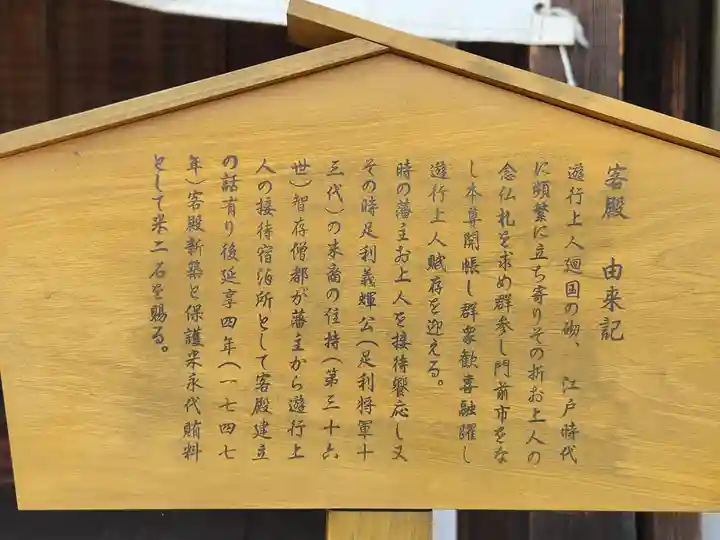 客殿　由来記
遊行上人廻国の砌、江戸時代
に頻繁に立ち寄りその折お上人の
念仏札を求め群参し門前市をな
し本尊開帳し群衆歓喜融躍し
遊行上人賦存を迎える。
時の藩主お上人を接待饗応し又
その時足利義輝公(足利将軍十
三代)の末裔の住持(第三十六
世)智存僧都が藩主から遊行上
人の接待宿泊所として客殿建立
の話有り後延享四年(一七四七
年)客殿新築と保護米永代賄料
として米二石を賜る。